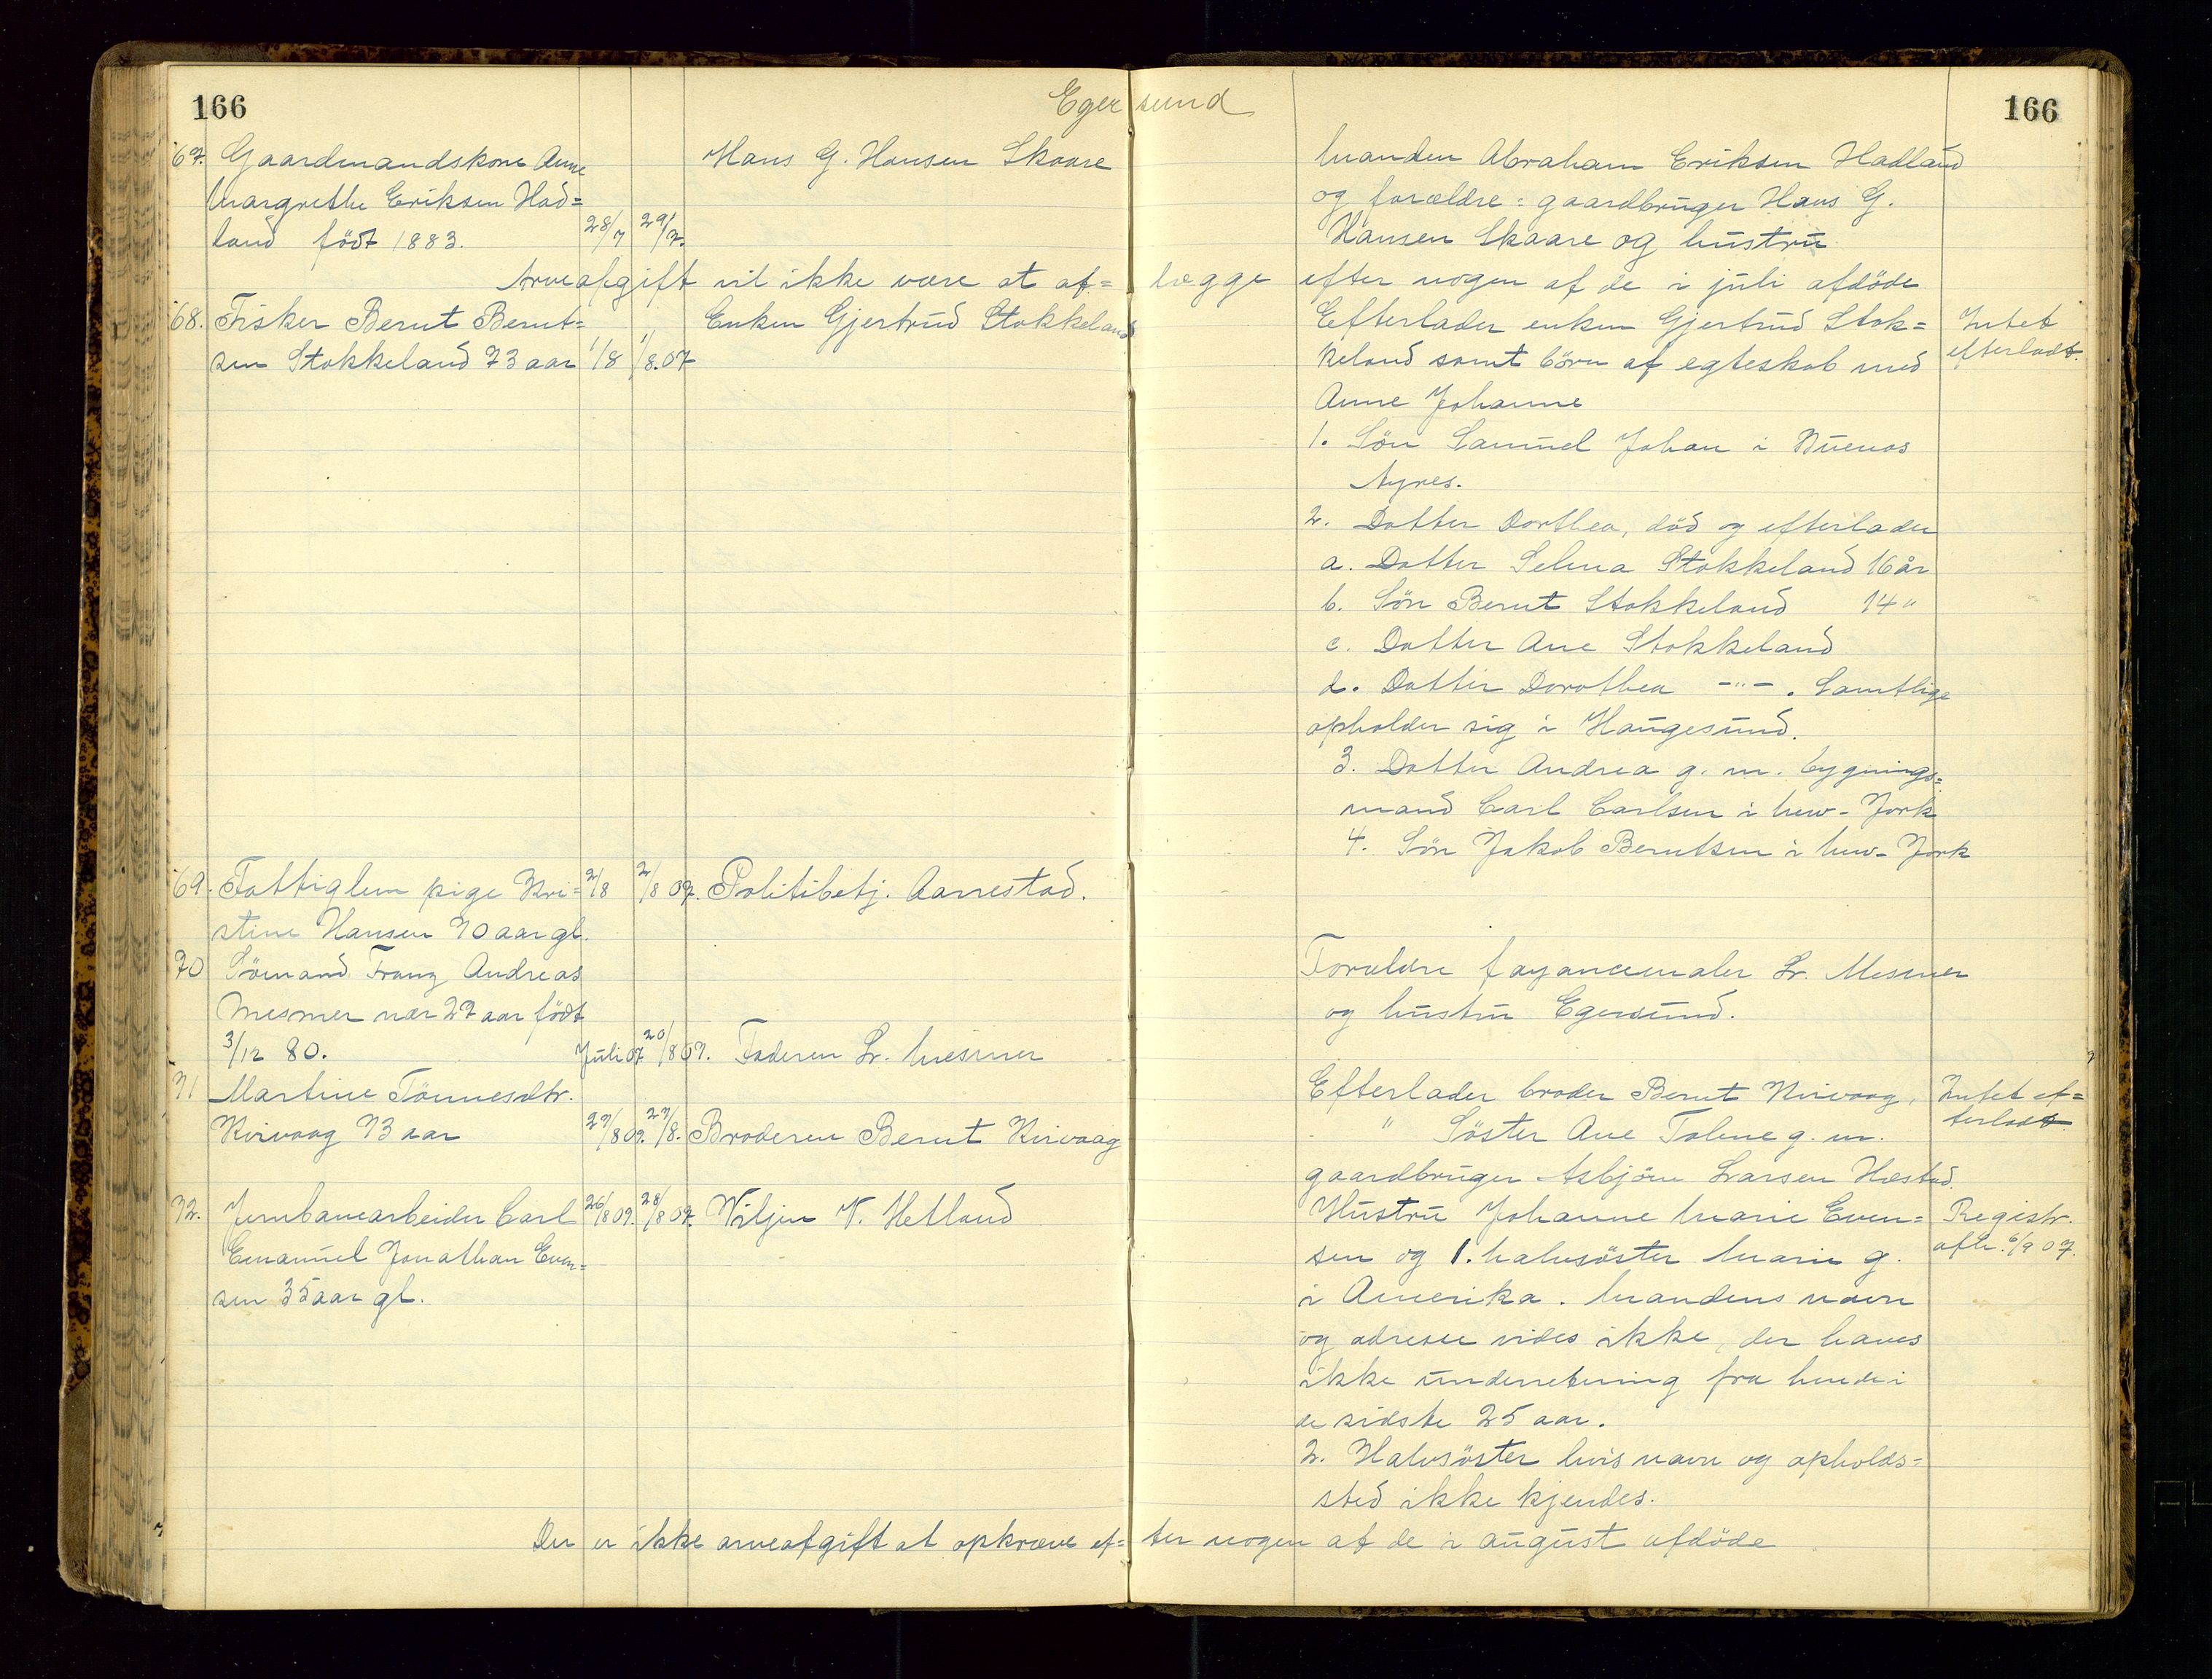 166
Egersund
166
67. Gaardmandskone Anne
Margrethe Eriksen Had=
land født 1883. 28/7 29/7.
Hans G. Hansen Skaare
Manden Abraham Eriksen Hadland
og forældre: gaardbruger Hans G.
Hansen Skaare og hustru
Arveafgift vil ikke være at af= lægge efter nogen af de i juli afdöde
68. Fisker Bernt Bernt=
sen Stokkeland 73 aar 1/8 1/8.07
Enken Gjertrud Stokkeland
Efterlader enken Gjertrud Stok=
keland samt börn af egteskab med
Anne Johanne
1. Sön Samuel Johan i Buenos
Ayres.
2. Datter Dorthea, död og efterlader
a. Datter Selma Stokkeland 16 år
b. Sön Bernt Stokkeland 14 "
c. Datter Ane Stokkeland
d. Datter Dorothea -"- . Samtlige
opholder sig i Haugesund.
3. Datter Andrea g. m. bygnings=
mand Carl Carlsen i New-York
4. Sön Jakob Berntsen i New-York
Intet
efterladt.
69. Fattiglem pige Kri=
stine Hansen 70 aar gl.
2/8 2/8 07. Politibetj. Aarrestad.
70 Sömand Franz Andreas
Mesmer nær 27 aar født
3/12 80. Juli 07. 20/8 07. Faderen Lr. Mesmer
Forældre fayancemaler Lr. Mesmer
og hustru Egersund.
71 Martine Tönnesdtr.
Kirvaag 73 aar 27/8 07. 27/8. Broderen Bernt Kirvaag
Efterlader broder Bernt Kirvaag,
" Söster Ane Tolene g. m.
gaardbruger Asbjörn Larsen Hæstad.
Intet ef=
terladt.
72. Jernbanearbeider Carl
Emanuel Jonathan Even=
sen 35 aar gl.
26/8 07. 28/8 07. Viljen V. Hetland
Hustru Johanne Marie Even=
sen og 1. halvsöster Marie g.
i Amerika. Mandens navn
og adresse vides ikke, der haves
ikke underretning fra hende i
de sidste 25 aar.
2. Halvsöster hvis navn og opholds=
sted ikke kjendes.
Registr.
afh. 6/9 07.
Der er ikke arveafgift at opkræve ef= ter nogen af de i august afdöde